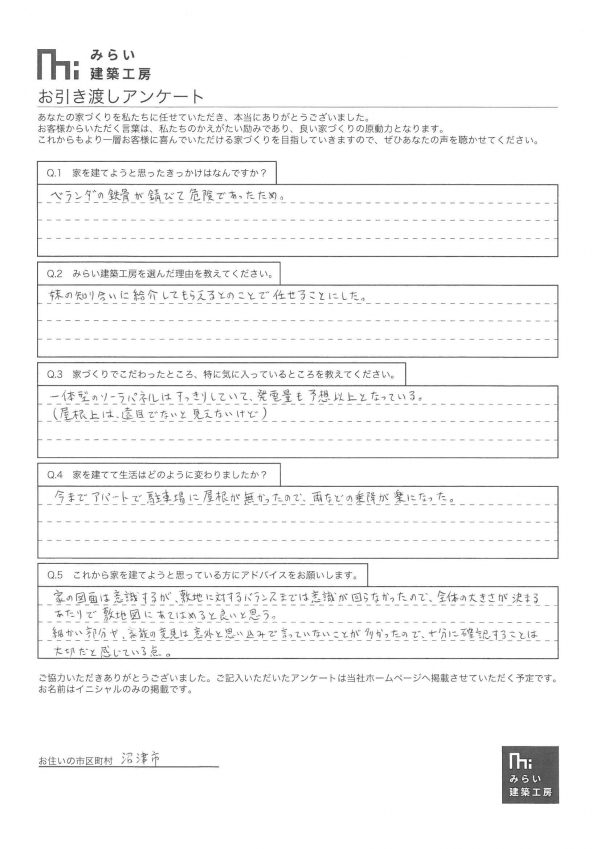 みらい
建築工房
お引き渡しアンケート
あなたの家づくりを私たちに任せていただき、本当にありがとうございました。
お客様からいただく言葉は、私たちのかえがたい励みであり、良い家づくりの原動力となります。
これからもより一層お客様に喜んでいただける家づくりを目指していきますので、ぜひあなたの声を聴かせてください。
Q.1 家を建てようと思ったきっかけはなんですか？
ベランダの鉄骨が錆びて危険であったため。
Q.2 みらい建築工房を選んだ理由を教えてください。
妹の知り合いに紹介してもらえるとのことで任せることにした。
Q.3 家づくりでこだわったところ、特に気に入っているところを教えてください。
一体型のソーラパネルはすっきりしていて、発電量も予想以上となっている。
(屋根上は、遠目でないと見えないけど)
Q.4 家を建てて生活はどのように変わりましたか？
今までアパートで駐車場に屋根が無かったので、雨などの乗降が楽になった。
Q.5 これから家を建てようと思っている方にアドバイスをお願いします。
家の図面は意識するが、敷地に対するバランスまでは意識が回らなかったので、全体の大きさが決まる
あたりで敷地図にあてはめると良いと思う。
細かい部分や、家族の意見は意外と思い込みで言っていないことが多かったので、十分に確認することは
大切だと感じている点。
ご協力いただきありがとうございました。ご記入いただいたアンケートは当社ホームページへ掲載させていただく予定です。
お名前はイニシャルのみの掲載です。
お住いの市区町村 沼津市
みらい
建築工房